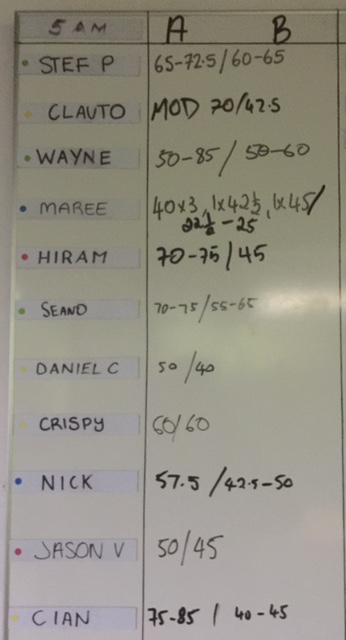 5 AM A B
STEF P 65-72.5/60-65
CLAUTO MOD 70/42.5
WAYNE 50-85 / 50-60
MAREE 40x3, 1x42½, 1x45/
22½-25
HIRAM 70-75/45
SEANO 70-75/55-65
DANIEL C 50/40
CRISPY 60/60
NICK 57.5 /42.5-50
JASON V 50/45
CIAN 75-85 / 40-45